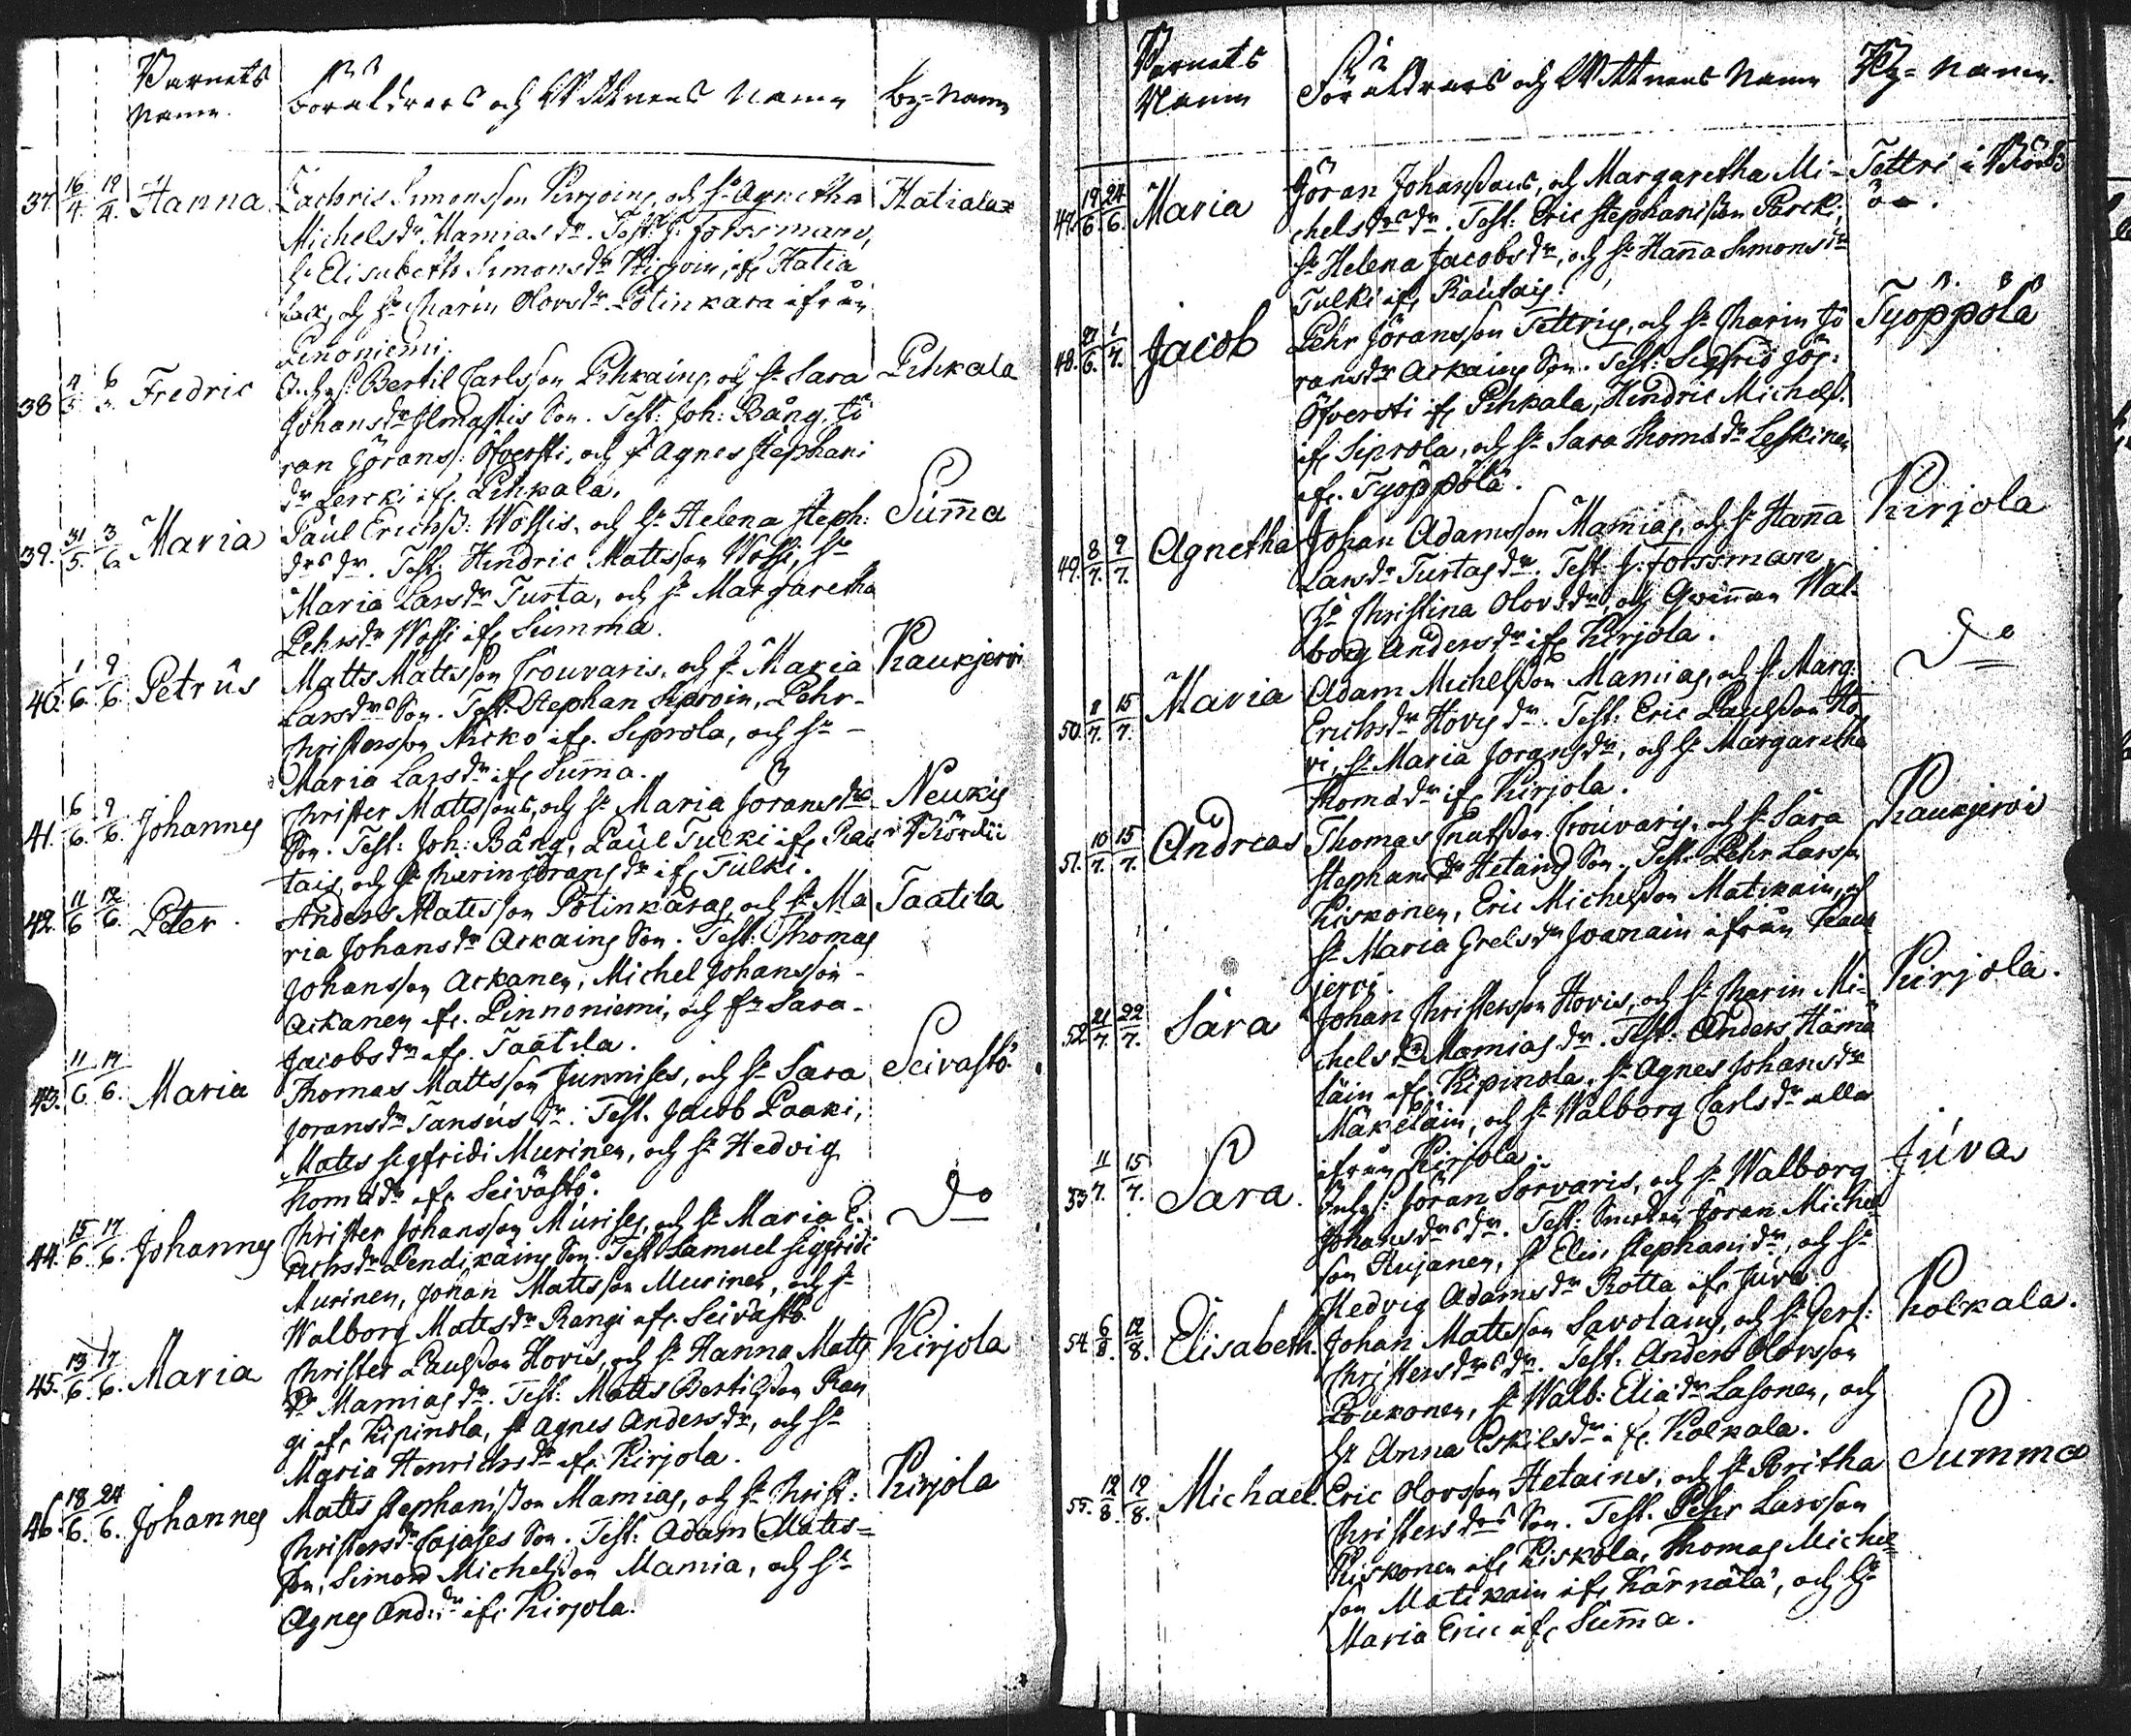 Barnets Namn. Föräldrars och Wittnens Namn By=Namn
37. 16/4. 19/4. Hanna Zachris Simonsson Kirjoins, och h: Agnetha Hatialax
Michelsdr Mamias dr. Test: J: Forssman,
h: Elisabeth Simonsdr Kirjoin, ifr. Hatia
lax, och h: Charin Olovsdr Pötinkara ifrån
Penoniemi.
38 4/5 6/5. Fredric Inhys: Bertil Carlsson Pihkains, och h: Sara Pihkala
Johansdr Ilmastis Son. Test: Joh: Bång, Jö
ran Jörans: Öfversti, och h: Agnes Stephani
dr Lercki ifr. Pihkala.
39. 31/5. 3/6. Maria Paul Erichss: Wossis, och h: Helena Steph: Sum̄a
drs dr. Test: Hindric Mattsson Wossi, h:
Maria Larsdr Turta, och h: Margaretha
Pehrsdr Wossi ifr. Summa.
40. 1/6. 9/6. Petrus Matts Mattsson Crouvaris, och h: Maria Kaukjervi
Larsdrs Son. Test: Stephan Siproin, Pehr
Christersson Kicko ifr. Siprola, och h:
Maria Larsdr ifr. Sum̄a.
41. 6/6. 9/6. Johannes Christer Mattssons, och h: Maria Joransdrs Neukis
Son. Test: Joh: Bång, Paul Tulki ifr. Rau i Björkö
tais, och h: Charin Joransdr ifr. Tulki.
42. 11/6 12/6. Peter. Anders Mattsson Pötinkaras, och h: Ma Taatila
ria Johansdr Arkains Son. Test: Thomas
Johansson Ackanen, Michel Johansson
Ackanen ifr. Pinnoniemi, och h: Sara
Jacobsdr ifr. Taatila.
43. 11/6. 17/6. Maria Thomas Mattsson Junnises, och h: Sara Seivastö.
Joransdr Tansus dr. Test. Jacob Paaki,
Matts Sigfridi Murinen, och h: Hedvig
Thomædr ifr. Seivastö.
44. 15/6. 17/6. Johannes Christer Johansson Murises, och h: Maria E- Do
richsdr Pendikäins Son. Test. Samuel Sigfridi
Murinen, Johan Mattsson Murinen, och h:
Walborg Mattsdr Rangi ifr. Seivastö.
45. 13/6. 17/6. Maria Christer Paulsson Hovis, och h: Hanna Matts Kirjola
dr Mamias dr. Test: Matts Bertilsson Ran
gi ifr. Kipinola, h: Agnes Andersdr, och h:
Maria Henrichsdr ifr. Kirjola.
46. 18/6. 24/6. Johannes Matts Stephanisson Mamias, och h: Christ: Kirjola
Christersdr Cajases Son. Test: Adam Matts=
son, Simon Michelsson Mamia, och h:
Agnes And:dr ifr. Kirjola.
Barnets Namn Föräldrars och Wittnens Namn By=namn.
47. 19/6. 24/6. Maria Göran Johanssons, och Margaretha Mi- Tettri i Björkö
chelsdrs dr. Test: Eric Stephanisson Parcki,
h: Helena Jacobsdr, och h: Han̄a Simonsdr
Tulki ifr. Rautais.
48. 27/6. 1/7. Jacob Pehr Joransson Tettris, och h: Charin Jö Tyoppölä
ransdr Arkains Son. Test: Sigfrid Jör:
Öfversti ifr. Pihkala, Hindric Michels.
ifr. Siprola, och h: Sara Thomædr Leskinen
ifr. Tyoppölä.
49. 8/7. 9/7. Agnetha Johan Adamsson Mamias, och h: Han̄a Kirjola
Larsdr Turtas dr. Test: J: Forssman,
h: Christina Olovsdr, och Qwinnan Wal-
borg Andersdr ifr. Kirjola.
50. 8/7. 15/7. Maria Adam Michelsson Mamias, och h: Marg: Do
Erichsdr Hovis dr. Test: Eric Paulsson Ho
vi, h: Maria Joransdr, och h: Margaretha
Thomædr ifr. Kirjola.
51. 10/7. 15/7. Andreas Thomas Cnutsson Crouvaris, och h: Sara Kaukjervi
Stephanidr Hetains Son. Test: Pehr Larsson
Kiskonen, Eric Michelsson Matikain, och
h: Maria Grelsdr Joanain ifrån Kauk
jervi.
52. 21/7. 22/7. Sara Johan Christersson Hovis, och h: Charin Mi- Kirjola.
chelsdr Mamias dr. Test: Anders Hämä
läin ifr. Kipinola, h: Agnes Johansdr
Mäkeläin, och h: Walborg Carlsdr alla
ifrån Kirjola.
53 11/7. 15/7. Sara. Inhys: Jöran Sorvaris, och h: Walborg Juva
Johansdrs dr. Test: Smeden Jöran Michel
son Kujanen, h: Elis: Stephanidr, och h:
Hedvig Adamsdr Rotta ifr. Juva.
54. 6/8. 12/8. Elisabeth. Johan Mattsson Savolains, och h: Gert: Kolkala.
Christersdrs dr. Test: Anders Olovsson
Poukonen, h: Walb: Eliædr Lasonen, och
h: Anna Eskilsdr ifr. Kolkala.
55. 12/8. 12/8. Michael. Eric Olovsson Hetains, och h: Britha Summa
Christersdrs Son. Test. Pehr Larsson
Kiskonen ifr. Kiskola, Thomas Michel=
son Matikain ifr. Kärnälä, och h:
Maria Eric ifr. Sum̄a.